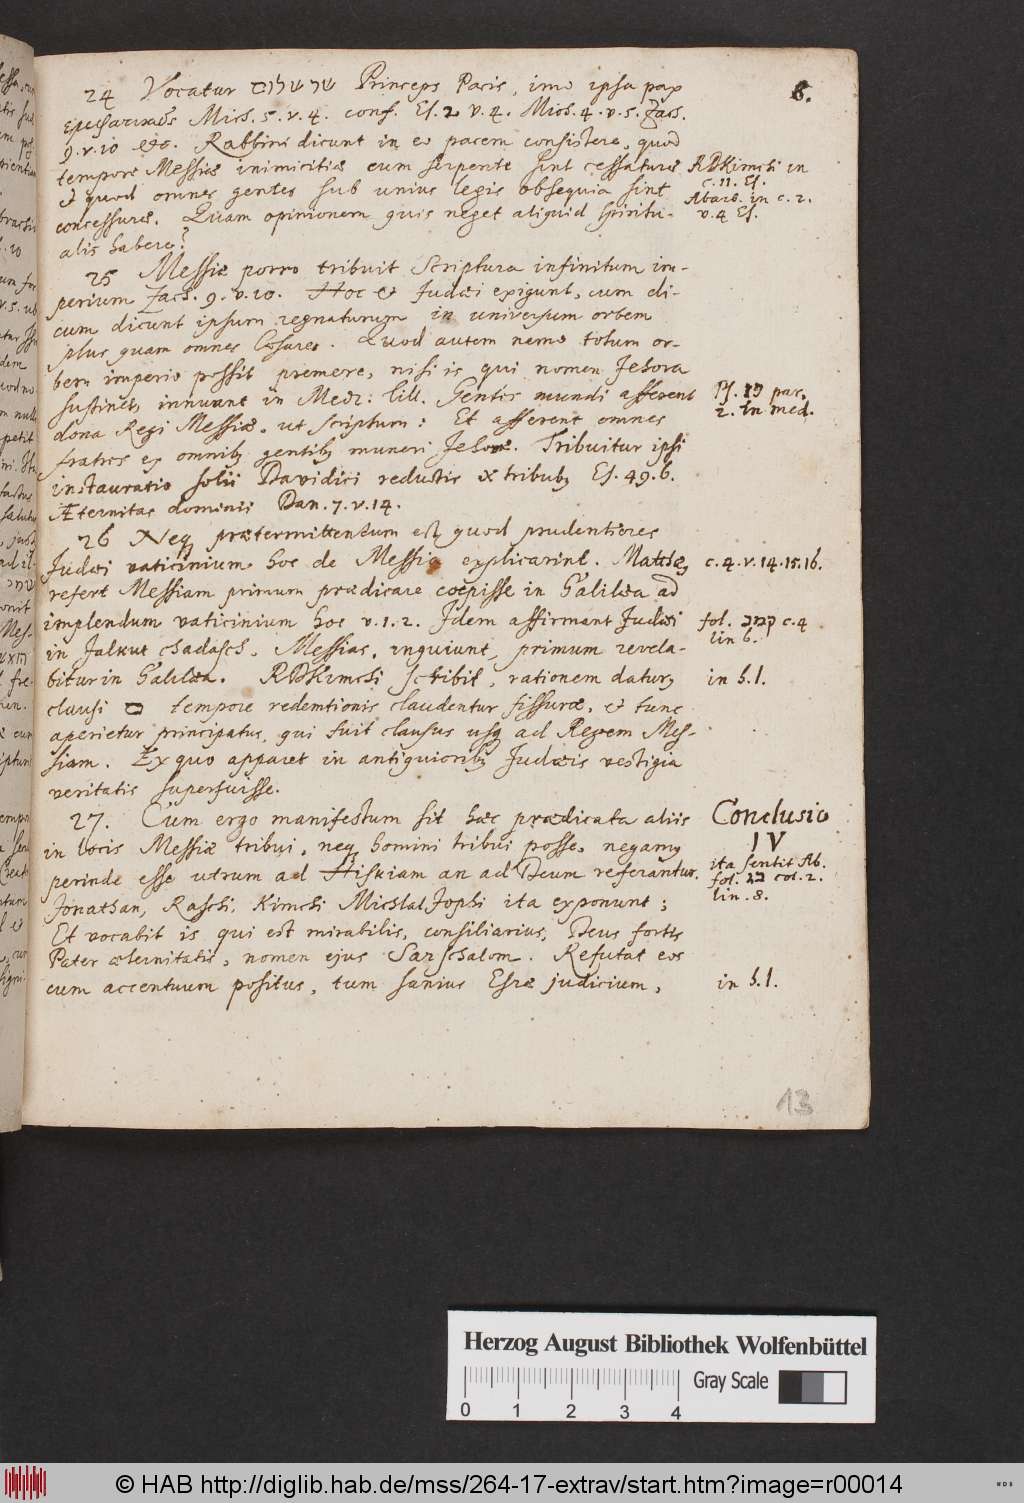 8.
24 Vocatur שר שלום Princeps Pacis, imo ipsa pax
Mics. 5. v. 4. conf. Es. 2 v. 4. Mics. 4. v. 5. Zach.
9. v. 10 etc. Rabbini dicunt in eo pacem consistere, quod
tempore Messiæ inimicitiæ cum serpente sint cessaturæ
& quod omnes gentes sub unius legis obsequia sint
concessuræ. Quam opinionem quis neget aliquid spiritu-
alis habere?
RDKimchi in
c. 11. Es.
Abarb. in c. 2.
v. 4 Es.
25 Messiæ porro tribuit Scriptura infinitum im-
perium Zach. 9. v. 10. Hoc & Judæi exigunt, cum di-
cum dicunt ipsum regnaturum in universum orbem
plus quam omnes Cæsares. Quod autem nemo totum or-
bem imperio possit premere, nisi is qui nomen Jehova
sustinet, innuunt in Medr: Till. Gentes mundi afferent
dona Regi Messiæ, ut scriptum: Et afferent omnes
fratres ex omnibq gentibq muneri Jehovæ. Tribuitur ipsi
instauratio solii Davidici reductis x tribubq Es. 49. 6.
Æternitas dominii Dan. 7. v. 14.
Ps. פז par.
2. in med.
26 Neq prætermittendum est quod prudentiores
Judæi vaticinium hoc de Messia explicarint. Matthæq
refert Messiam primum prædicare cœpisse in Galilæa ad
implendum vaticinium hoc v. 1. 2. Idem affirmant Judæi
in Jalkut chadasch. Messias, inquiunt, primum revela-
bitur in Galilæa. RDKimchi scribit, rationem datury
clausi ם tempore redemtionis claudentur fissuræ, & tunc
aperietur principatus, qui fuit clausus usq ad Regem Mes-
siam. Ex quo apparet in antiquioribq Judæis vestigia
veritatis superfuisse.
c. 4. v. 14. 15. 16.
fol. קמב c. 4
lin 6.
in h. l.
27. Cum ergo manifestum sit hæc prædicata aliis
in locis Messiæ tribui, neq homini tribui posse, negamq
perinde esse utrum ad Hiskiam an ad Deum referantur.
Jonathan, Raschi, Kimchi Michlal Jophi ita exponunt;
Et vocabit is qui est mirabilis, consiliarius, Deus fortis
Pater æternitatis, nomen ejus Sar schalom. Refutat eos
cum accentuum positus, tum sanius Esræ judicium,
Conclusio
IV
ita sentit Ab.
fol. כד col. 2.
lin. 8.
in h. l.
13
Herzog August Bibliothek Wolfenbüttel
Gray Scale
0 1 2 3 4
© HAB http://diglib.hab.de/mss/264-17-extrav/start.htm?image=r00014